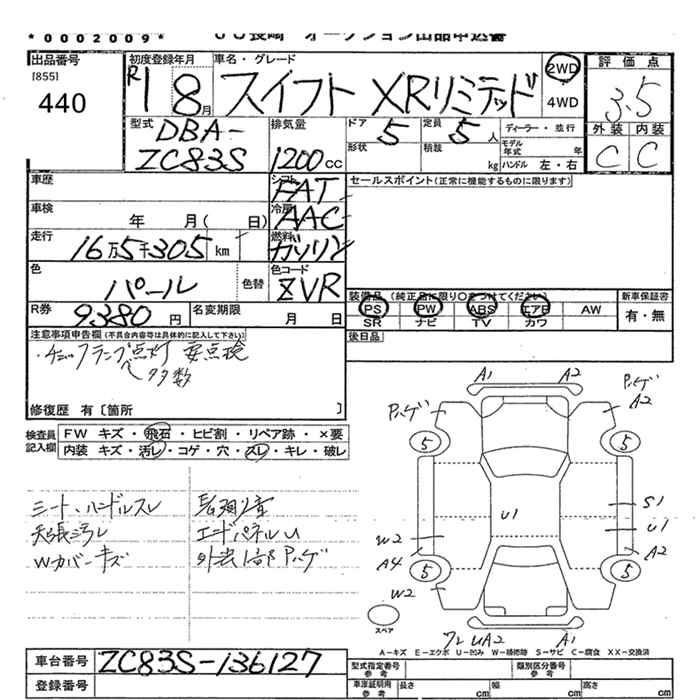 *0002009*
ＪＵ長崎 オークション出品申込書
出品番号
[855]
440
初度登録年月
R1 8月
車名・グレード
スイフト XRリミテッド
2WD
4WD
評価点
3.5
外装 内装
C C
型式
DBA-
ZC83S
排気量
1200cc
ドア
5
形状
定員
5人
積載
kg
ディーラー・並行
モデル年式 年
ハンドル 左・右
車歴
シフト
FAT
セールスポイント(正常に機能するものに限ります)
車検 年 月( 日)
冷房
AAC
走行
16万5千305 km
燃料
ガソリン
色
パール
色替
色コード
ZVR
R券
9380円
名変期限 月 日
装備品 (純正品に限り○をつけてください)
PS PW ABS エアB AW
SR ナビ TV カワ
新車保証書
有・無
後日品
注意事項申告欄(不具合内容等は具体的に記入して下さい)
・チェックランプ点灯 要点検
多数
修復歴 有〔箇所 〕
検査員記入欄
FW キズ・飛石・ヒビ割・リペア跡・×要
内装 キズ・汚レ・コゲ・穴・スレ・キレ・破レ
シート、ハンドルスレ
天張汚レ
Wカバーキズ
エンドパネルU
外装1部Pハゲ
A1 A2
Pハゲ
Pハゲ
A2
5 5
U1
S1
U1
W2
A4
A2
5 5
W2
UA2
A1
スペア
A－キズ E－エクボ U－凹み W－補修跡 S－サビ C－腐食 XX－交換済
車台番号
ZC83S-136127
登録番号
型式指定番号
参考
類別区分番号
参考
車庫証明用
参考
長さ cm
幅 cm
高さ cm